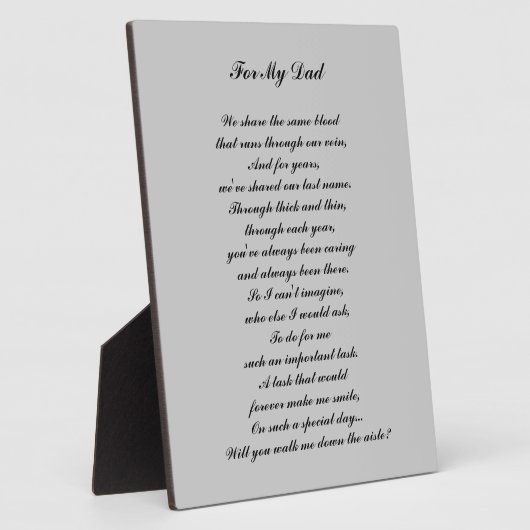 For My Dad
We share the same blood
that runs through our vein,
And for years,
we've shared our last name.
Through thick and thin,
through each year,
you've always been caring
and always been there.
So I can't imagine,
who else I would ask,
To do for me
such an important task.
A task that would
forever make me smile,
On such a special day...
Will you walk me down the aisle?